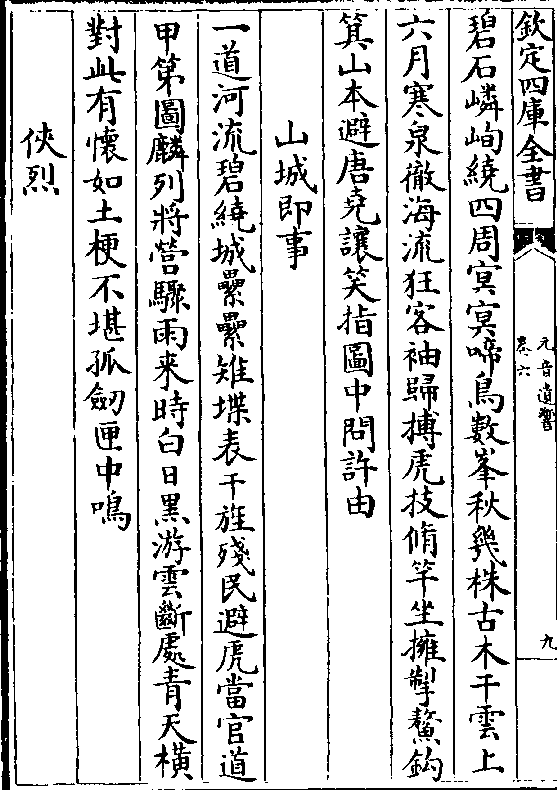 欽定四庫全書
元音遺響
卷六
九
碧石嶙峋繞四周冥冥啼鳥數峯秋幾株古木干雲上
六月寒泉徹海流狂客袖歸搏虎技脩竿坐擁掣鰲鈎
箕山本避唐堯讓笑指圖中問許由
山城即事
一道河流碧繞城纍纍雉堞表干旌殘民避虎當官道
甲第圖麟列將營驟雨来時白日黒游雲斷處青天橫
對此有懷如土梗不堪孤劒匣中鳴
俠烈